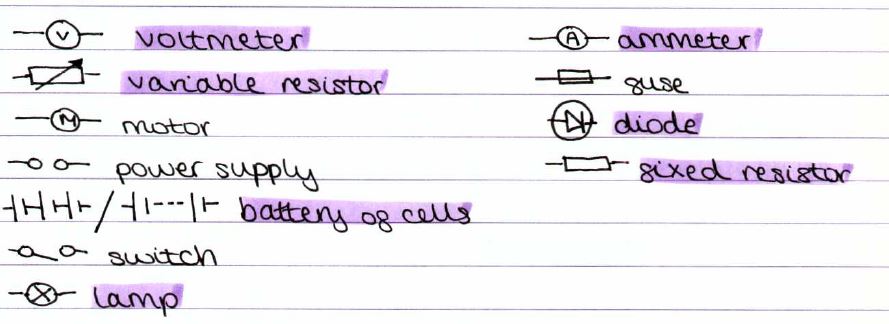 V voltmeter
variable resistor
M motor
power supply
battery of cells
switch
lamp
A ammeter
fuse
diode
fixed resistor